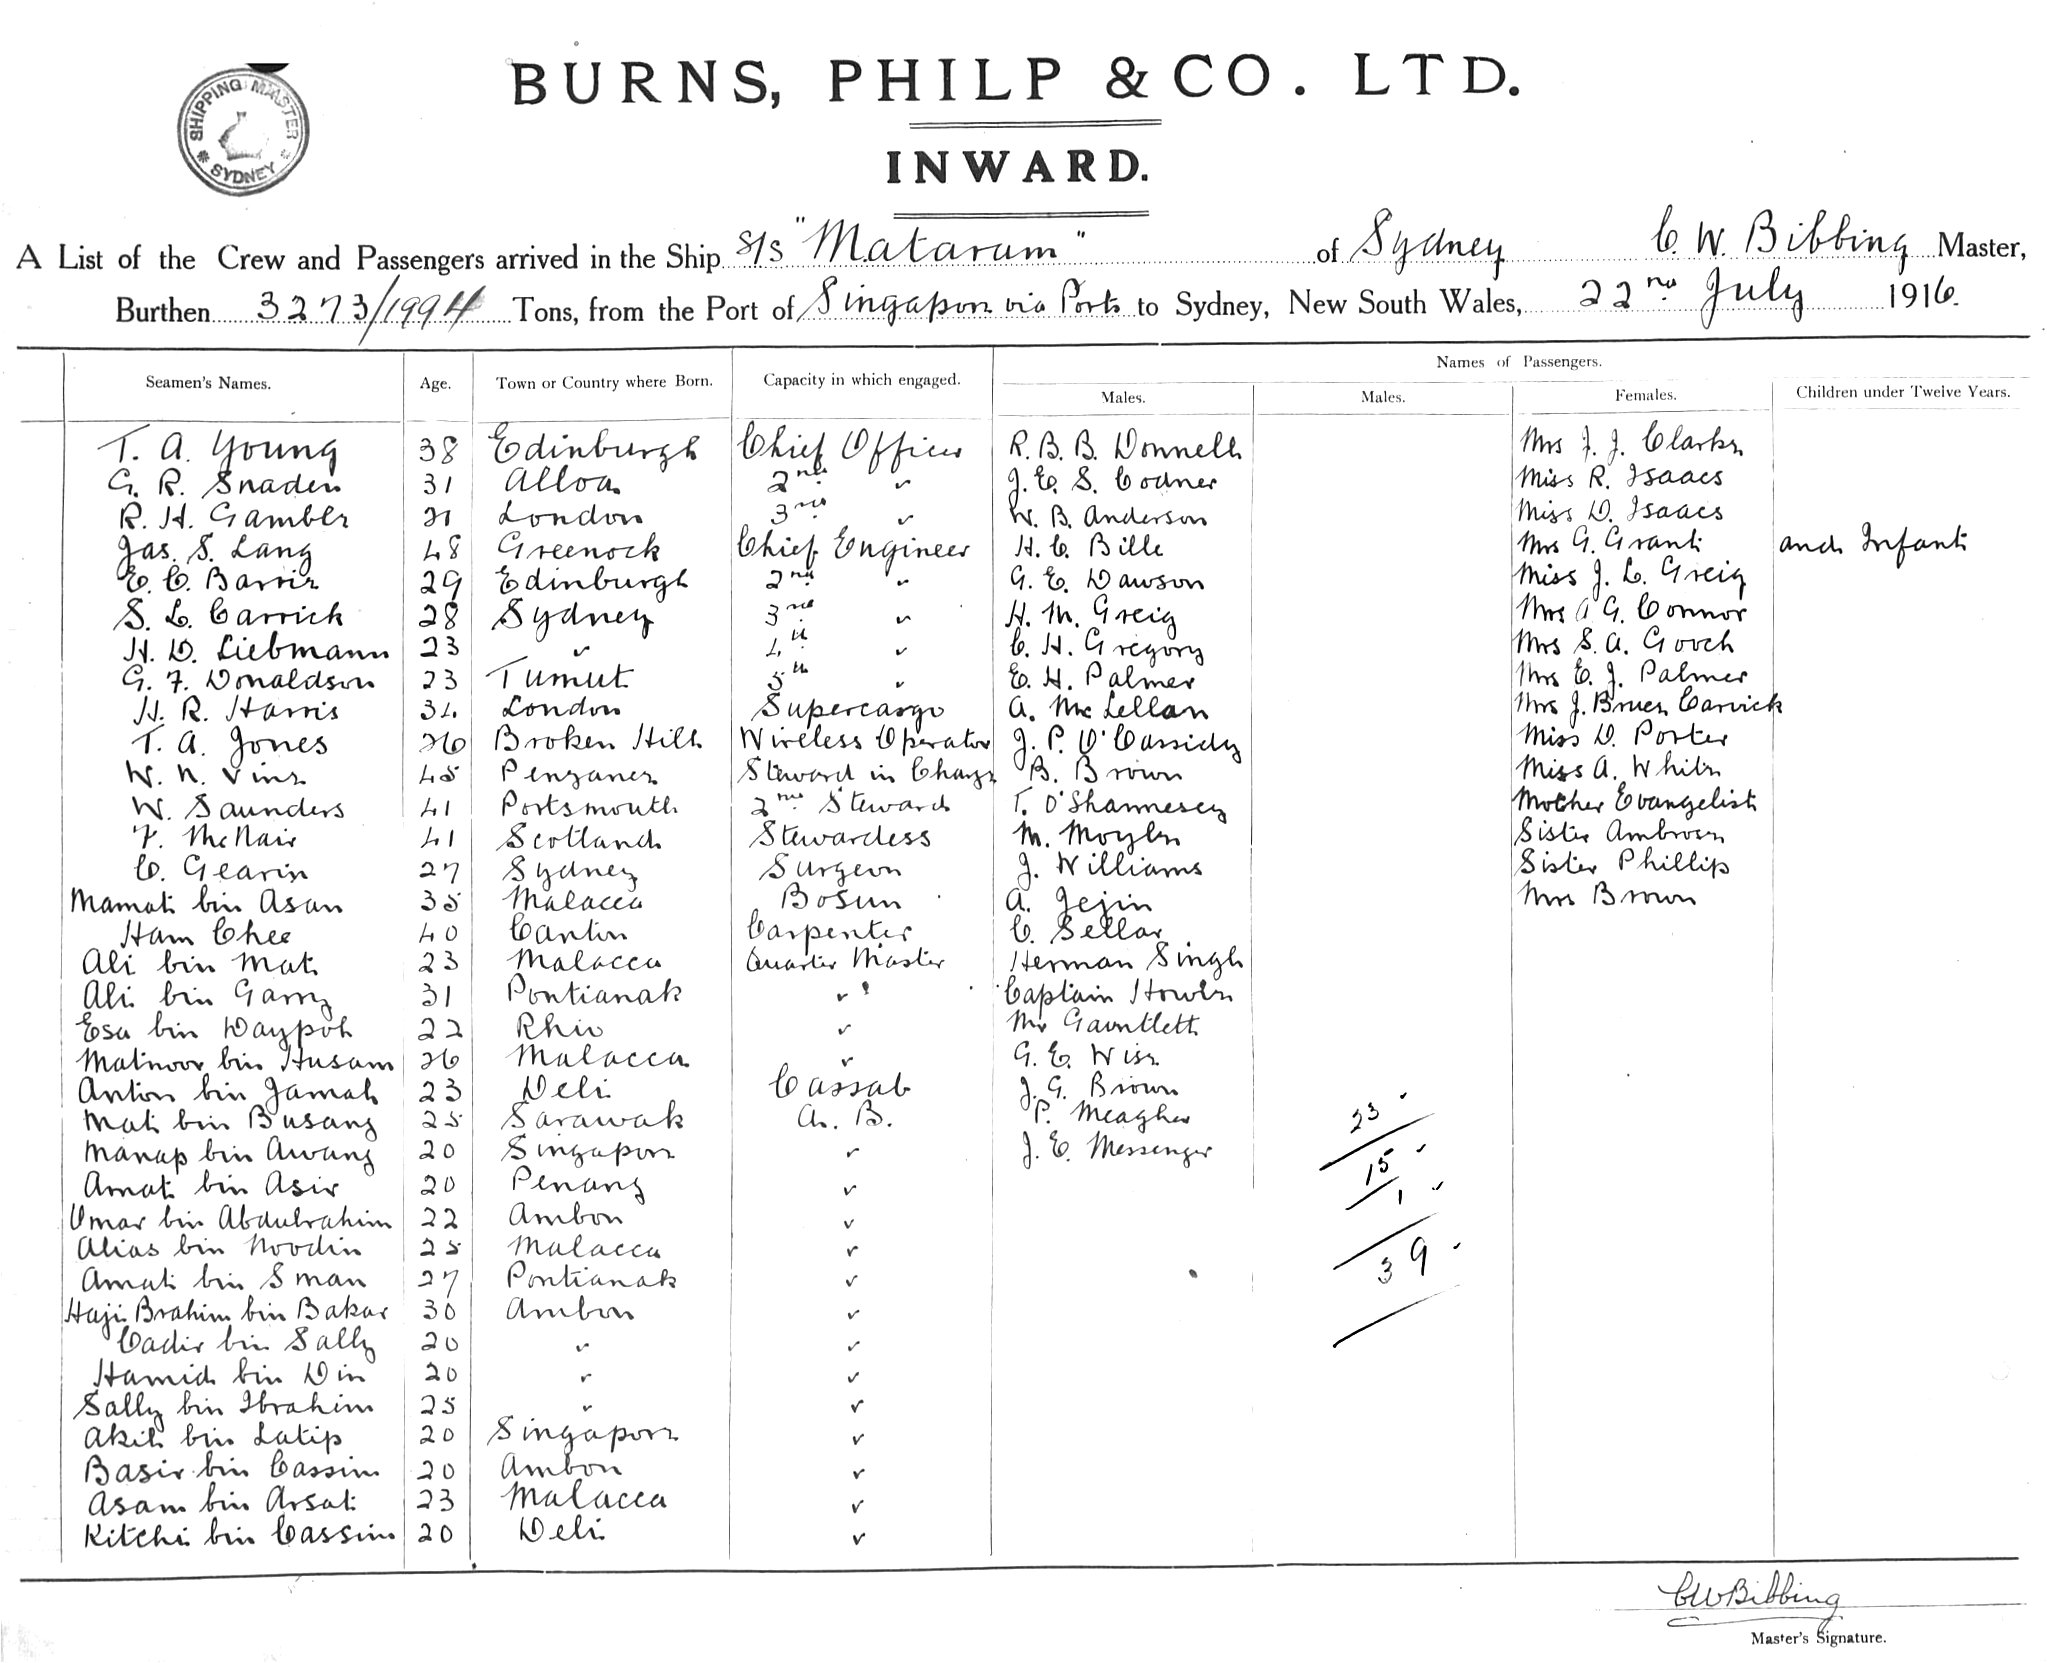 SHIPPING MASTER
SYDNEY
BURNS, PHILP & CO. LTD.
INWARD.
A List of the Crew and Passengers arrived in the Ship S/S "Mataram" of Sydney C. W. Bibbing Master,
Burthen 3273/1994 Tons, from the Port of Singapore via Ports to Sydney, New South Wales, 22nd July 1916.
Names of Passengers.
Seamen's Names. Age. Town or Country where Born. Capacity in which engaged. Males. Males. Females. Children under Twelve Years.
T. A. Young 38 Edinburgh Chief Officer R. B. B. Donnell Mrs J. J. Clarke
G. R. Snaden 31 Alloa 2nd " J. E. S. Codner Miss R. Isaacs
R. H. Gamble 21 London 3rd " W. B. Anderson Miss D. Isaacs
Jas. S. Lang 48 Greenock Chief Engineer H. C. Bille Mrs G. Grant and Infant
E. C. Barrie 29 Edinburgh 2nd " G. E. Dawson Miss J. L. Greig
S. L. Carrick 28 Sydney 3rd " H. M. Greig Mrs A G. Connor
H. D. Liebmann 23 " 4th " C. H. Gregory Mrs S. A. Gooch
G. F. Donaldson 23 Tumut 5th " E. H. Palmer Mrs E. J. Palmer
H. R. Harris 34 London Supercargo A. McLellan Mrs J. Bruce Carrick
T. A. Jones 26 Broken Hill Wireless Operator J. P. O'Cassidy Miss D. Porter
W. N. Vine 45 Penzance Steward in Charge B. Brown Miss A. White
W. Saunders 41 Portsmouth 2nd Steward T. O'Shannesey Mother Evangelist
F. McNair 41 Scotland Stewardess M. Moyle Sister Ambrose
C. Gearin 27 Sydney Surgeon J. Williams Sister Phillip
Mamat bin Asan 35 Malacca Bosun A. Jejin Mrs Brown
Ham Chee 40 Canton Carpenter C. Sellar
Ali bin Mat 23 Malacca Quarter Master Herman Singh
Ali bin Garry 31 Pontianak " Captain Howle
Esa bin Daypoh 22 Rhio " Mr Gauntlett
Matnoor bin Husam 26 Malacca " G. E. Wise
Anton bin Jamah 23 Deli Cassab J. G. Brown
Mat bin Busang 25 Sarawak A. B. P. Meagher
Manap bin Awang 20 Singapore " J. E. Messenger
Amat bin Asir 20 Penang "
Omar bin Abdulrahim 22 Ambon "
Alias bin Noodin 25 Malacca "
Amat bin Sman 27 Pontianak "
Haji Brahim bin Bakar 30 Ambon "
Cadir bin Sally 20 " "
Hamid bin Din 20 " "
Sally bin Ibrahim 25 " "
Akil bin Latip 20 Singapore "
Basir bin Cassim 20 Ambon "
Asam bin Arsat 23 Malacca "
Kitchi bin Cassim 20 Deli "
23
15
1
39
C W Bibbing
Master's Signature.